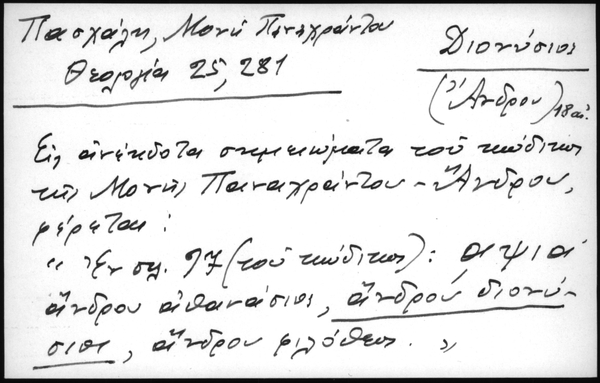 Πασχάλη, Μονή Παναχράντου
Θεολογία 25, 281
Διονύσιος
(Ἄνδρου) 18 αἰ.
Εἰς ἀνέκδοτα σημειώματα τοῦ κώδικος
τῆς Μονῆς Παναχράντου - Ἄνδρου,
φέρεται:
" Ἐν σελ. 97 (τοῦ κώδικος): αψια
ἄνδρου ἀθανάσιος, ἄνδρου διονύ-
σιος, ἄνδρου φιλόθεος. "